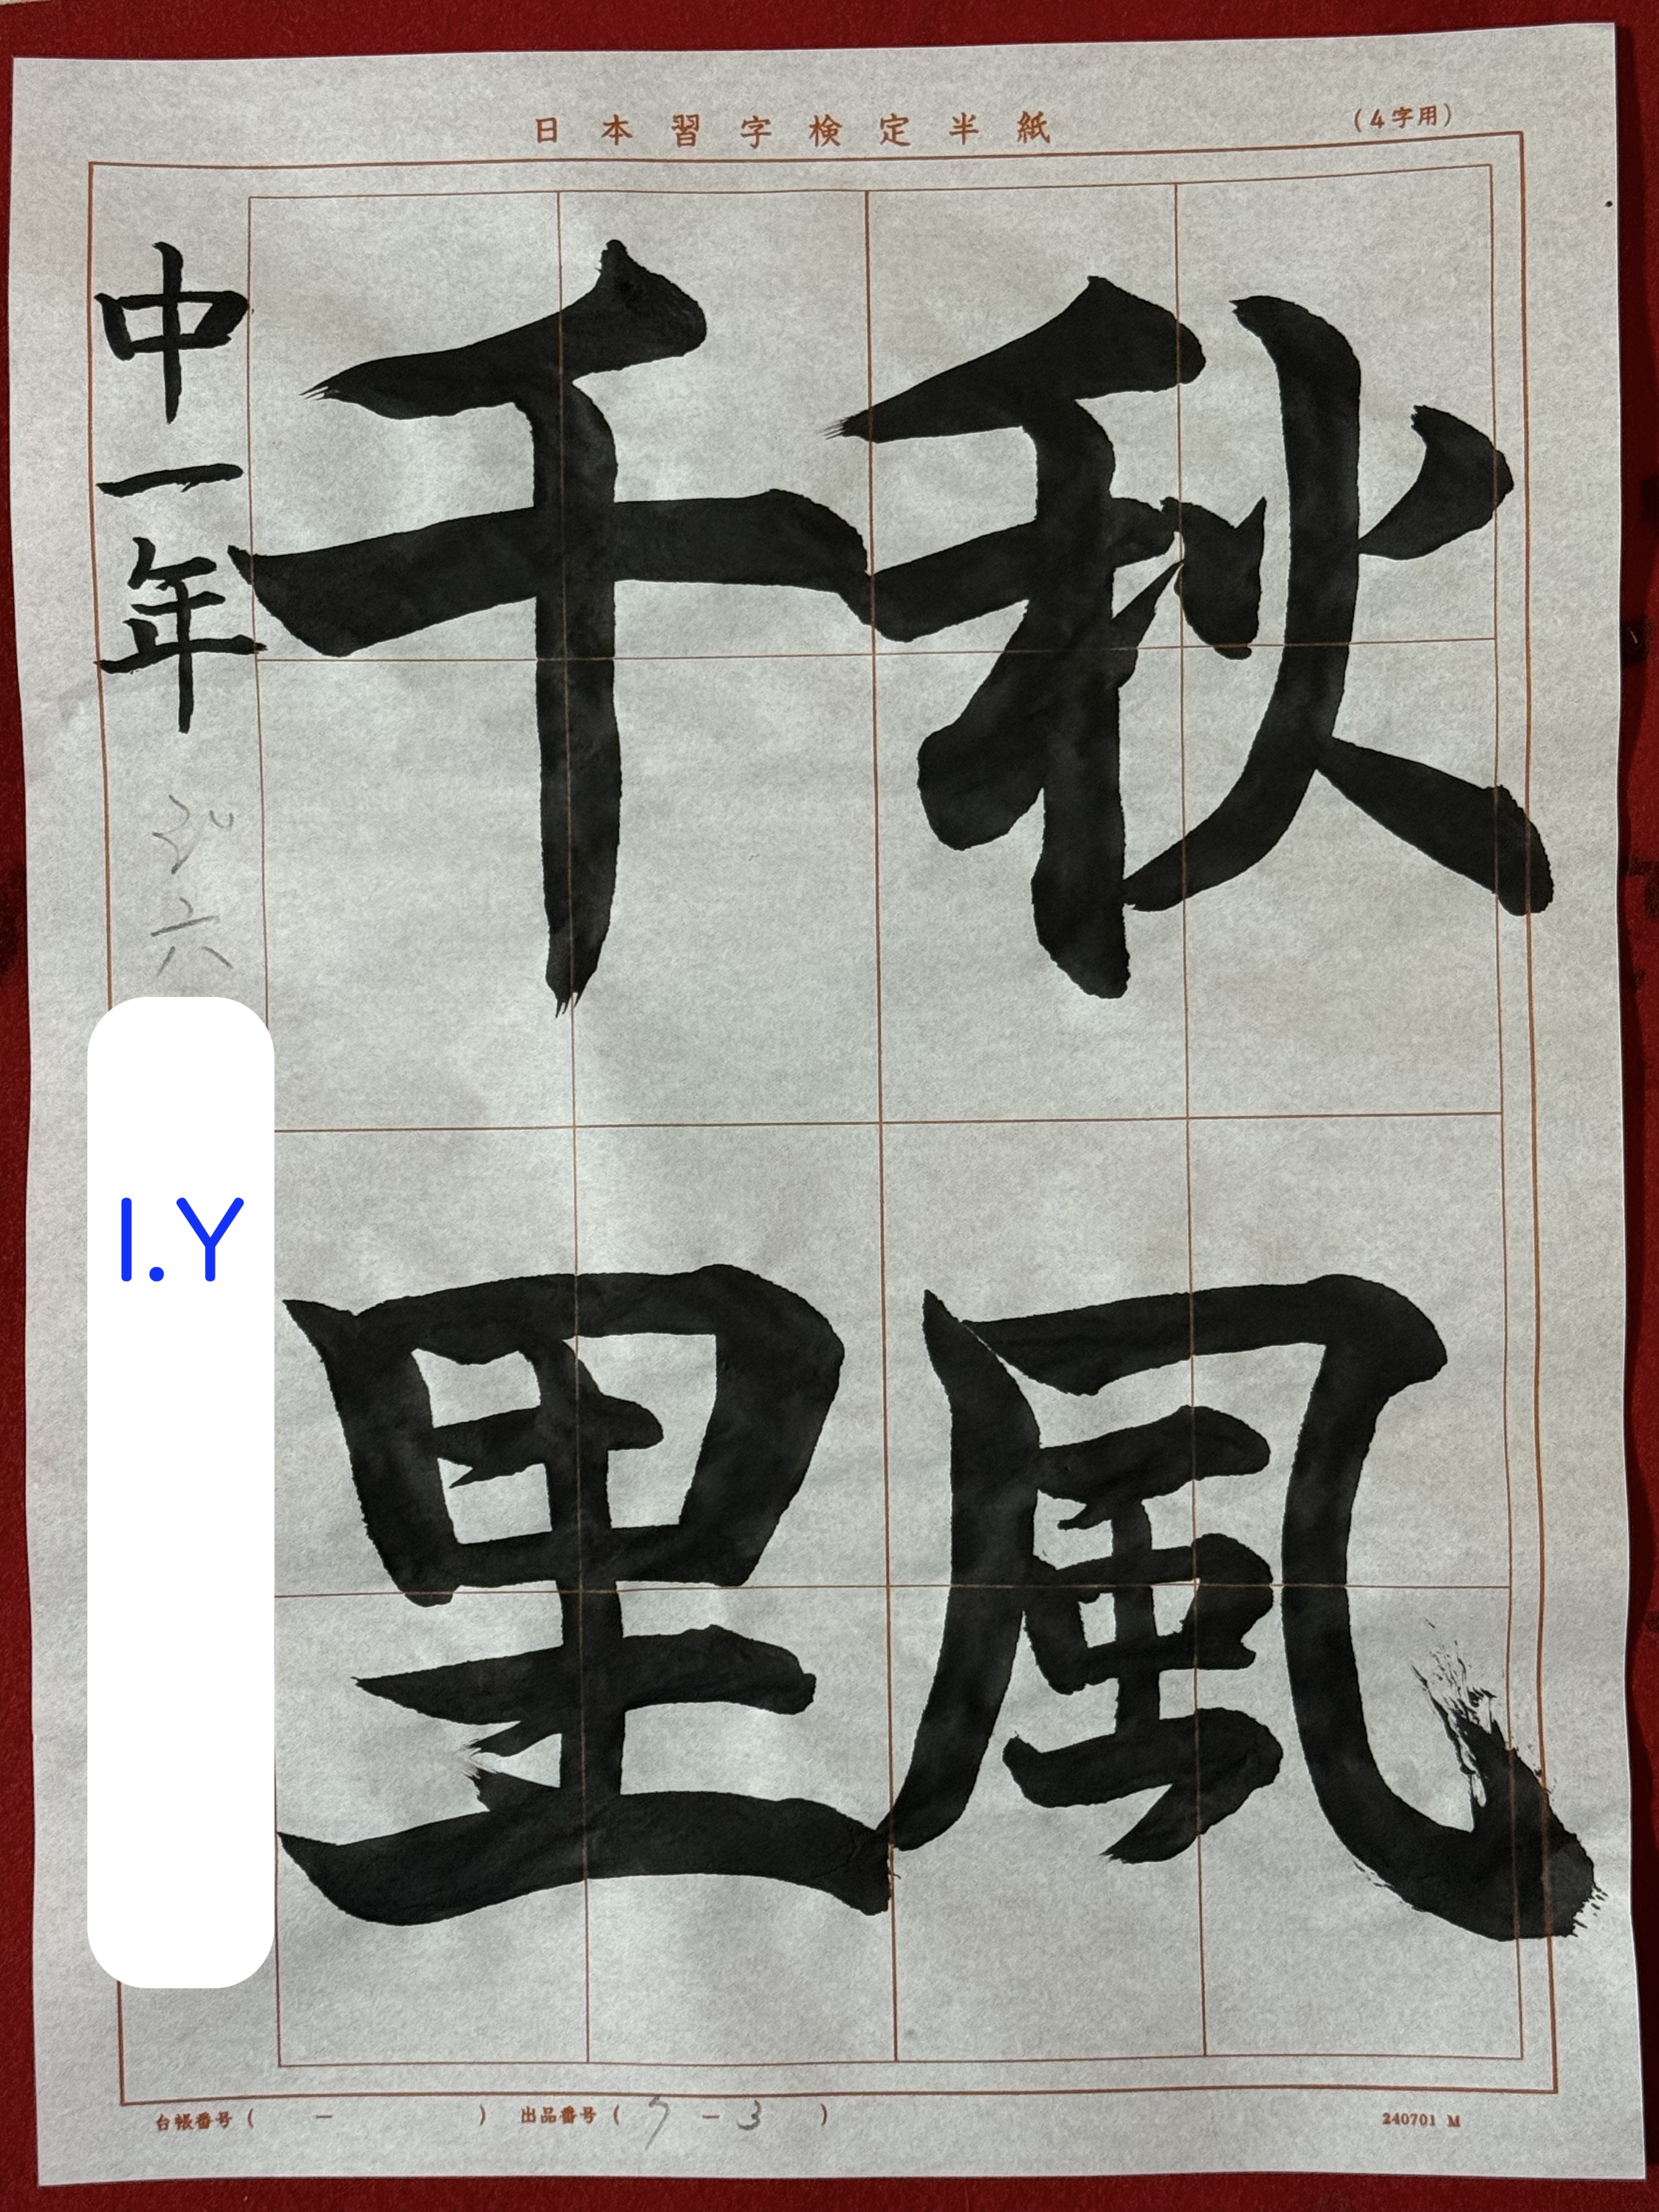 日本習字検定半紙
(4字用)
秋風
千里
中一年
六
I.Y
台帳番号( － ) 出品番号( 7 － 3 )
240701 M